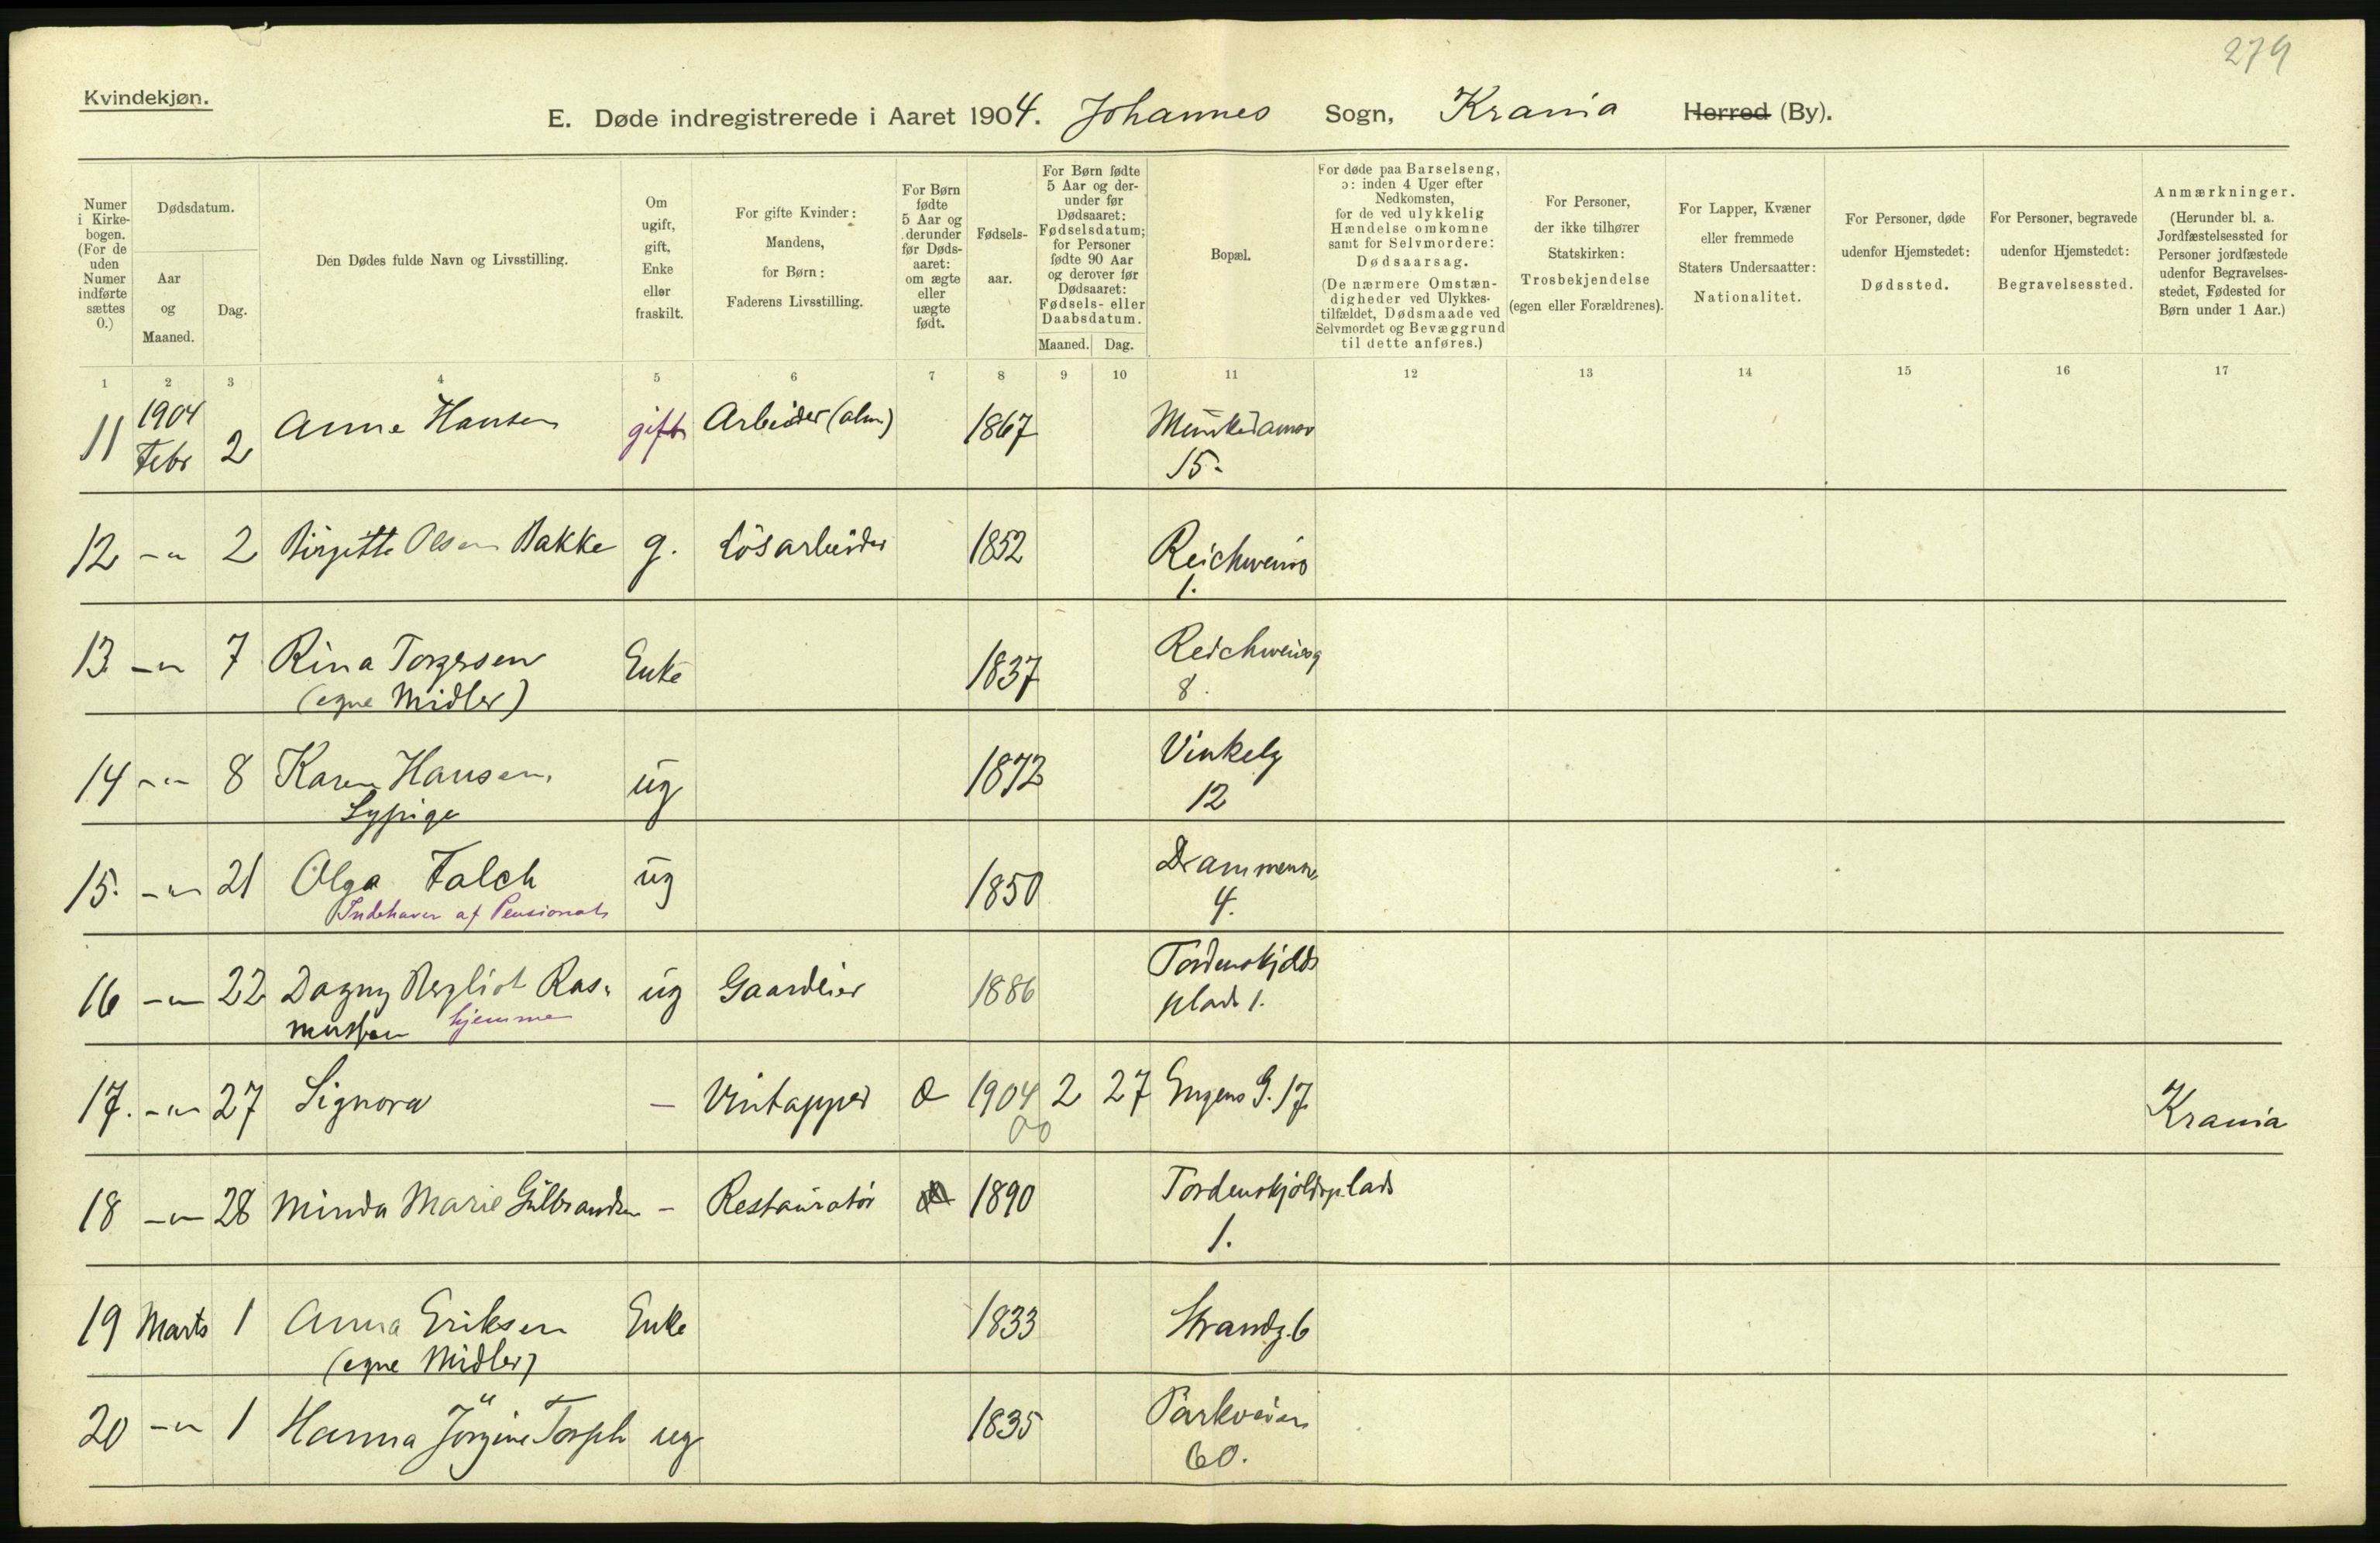 279
Kvindekjøn.
E. Døde indregistrerede i Aaret 1904. Johannes Sogn, Krania Herred (By).
Numer i Kirke-bogen. (For de uden Numer indførte sættes 0.)
Dødsdatum.
Aar og Maaned.
Dag.
Den Dødes fulde Navn og Livsstilling.
Om ugift, gift, Enke eller fraskilt.
For gifte Kvinder: Mandens, for Børn: Faderens Livsstilling.
For Børn fødte 5 Aar og derunder før Døds-aaret: om ægte eller uægte født.
Fødsels-aar.
For Børn fødte 5 Aar og der-under før Dødsaaret: Fødselsdatum; for Personer fødte 90 Aar og derover før Dødsaaret: Fødsels- eller Daabsdatum.
Maaned. Dag.
Bopæl.
For døde paa Barselseng, ɔ: inden 4 Uger efter Nedkomsten, for de ved ulykkelig Hændelse omkomne samt for Selvmordere: Dødsaarsag. (De nærmere Omstæn-digheder ved Ulykkes-tilfældet, Dødsmaade ved Selvmordet og Bevæggrund til dette anføres.)
For Personer, der ikke tilhører Statskirken: Trosbekjendelse (egen eller Forældrenes).
For Lapper, Kvæner eller fremmede Staters Undersaatter: Nationalitet.
For Personer, døde udenfor Hjemstedet: Dødssted.
For Personer, begravede udenfor Hjemstedet: Begravelsessted.
Anmærkninger. (Herunder bl. a. Jordfæstelsessted for Personer jordfæstede udenfor Begravelses-stedet, Fødested for Børn under 1 Aar.)
1 2 3 4 5 6 7 8 9 10 11 12 13 14 15 16 17
11 1904 Febr 2 Anne Hansen gift Arbeider (alm) 1867 Munkedamsv
15.
12 -"- 2 Birgitte Olsen Bakke g. Løsarbeider 1852 Reichweins
1.
13 -"- 7 Rina Torgersen Enke 1837 Reichweinsg
(egne Midler) 8.
14 -"- 8 Karen Hansen ug 1872 Vinkelg
Sypige 12
15. -"- 21 Olga Falch ug 1850 Drammensv
Indehaver af Pensionat 4.
16 -"- 22 Dagny Bergliot Ras- ug Gaardeier 1886 Tordenskjolds
mussen hjemme plads 1.
17. -"- 27 Signora - Vintapper 1904 2 27 Engens G. 17 Krania
00
18 -"- 28 Minda Marie Gulbrandsen - Restauratør 1890 Tordenskjoldsplads
1.
19 Marts 1 Anna Eriksen Enke 1833 Strandg. 6
(egne Midler)
20 -"- 1 Hanna Jørgine Torph ug 1835 Parkveien
60.